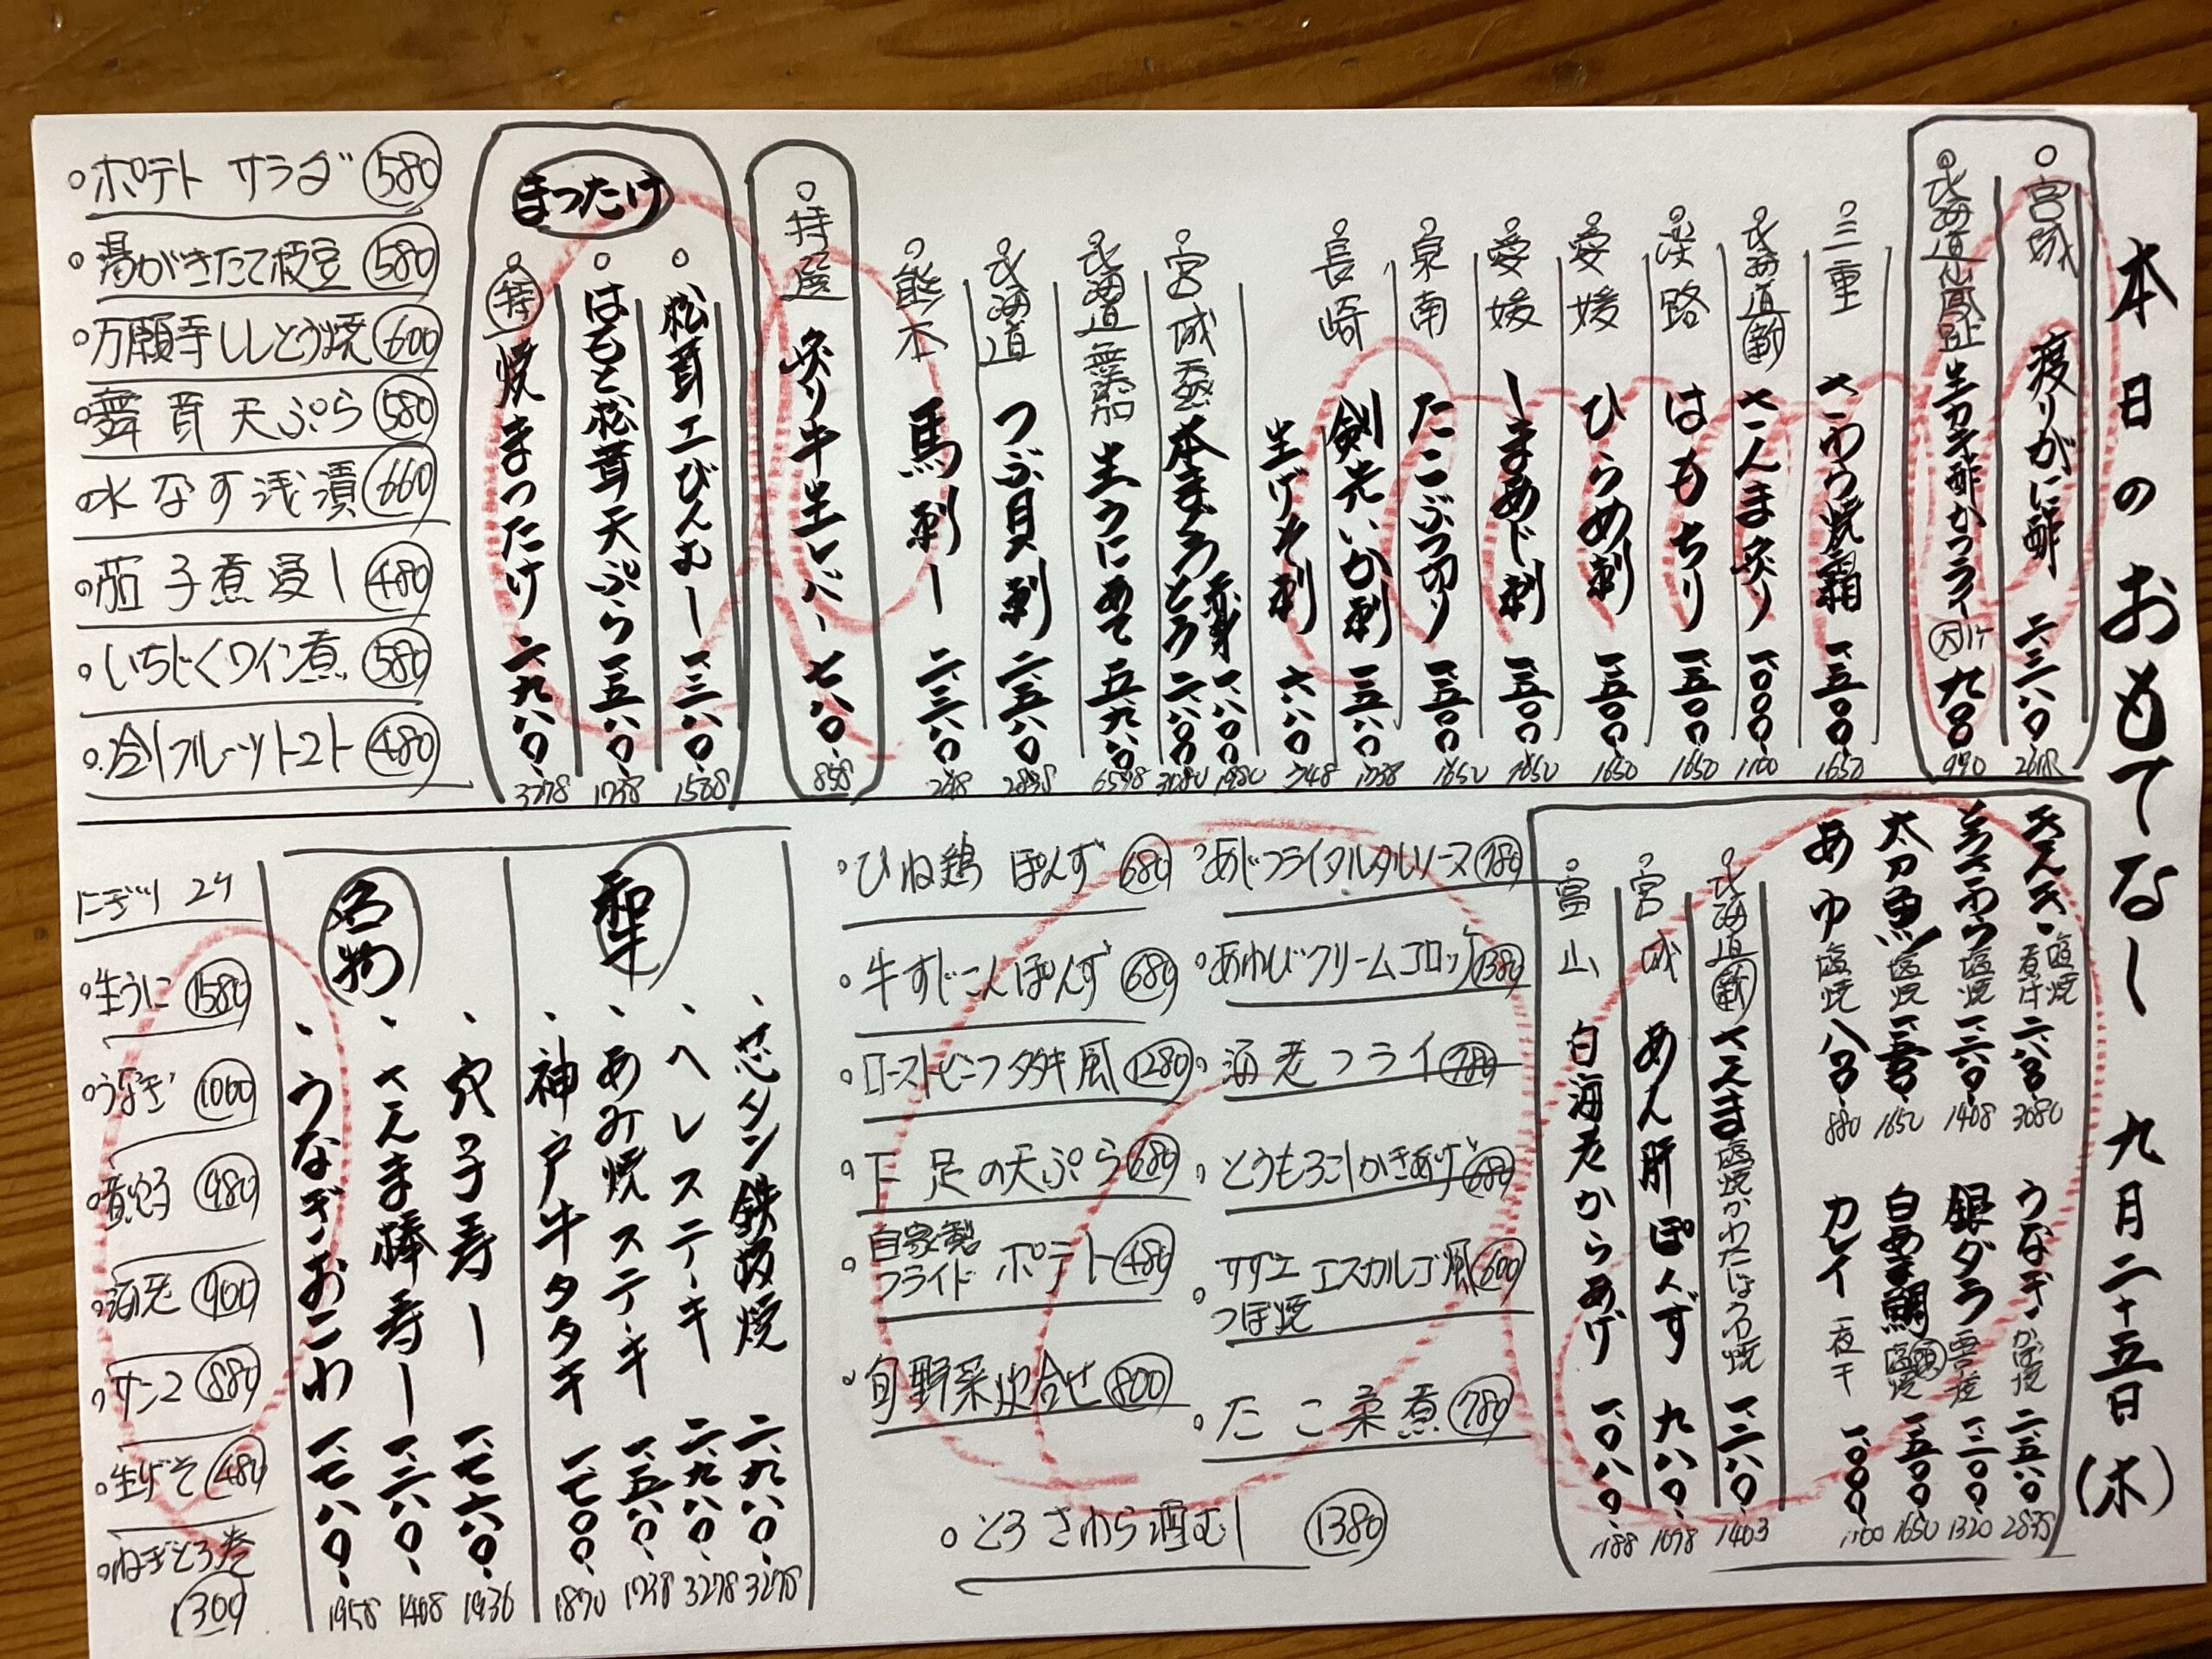 本日のおもてなし 九月二十五日(木)
宮城 渡りがに酢 二、三八〇 2618
北海道仙鳳趾 生カキ酢かフライ 九〇〇 990
三重 さわら焼霜 一、五〇〇 1650
北海道 新 さんま炙り 一、〇〇〇 1100
淡路 はもちり 一、五〇〇 1650
愛媛 ひらめ刺 一、五〇〇 1650
愛媛 しまあじ刺 一、五〇〇 1650
泉南 たこぶつ切り 一、五〇〇 1650
長崎 剣先いか刺 一、五八〇 1738
生げそ刺 六八〇 748
宮城 天然 本まぐろ 赤身 一、八〇〇 1980
とろ 二、八〇〇 3080
北海道 無添加 生うにあて 五、九八〇 6578
北海道 つぶ貝刺 二、五八〇 2838
熊本 馬刺し 二、三八〇
特選 炙り牛生レバー 七八〇 858
まったけ
松茸土びんむし 一、三八〇 1588
はもと松茸天ぷら 一、五八〇 1738
特 焼まったけ 二、九八〇 3278
ポテトサラダ 580
湯がきたて枝豆 580
万願寺ししとう焼 600
舞茸天ぷら 580
水なす浅漬 660
茄子煮浸し 480
いちじくワイン煮 580
冷しフルーツトマト 480
塩焼 煮付 二、八〇〇 3080
とろさわら 塩焼 一、二八〇 1408
太刀魚 塩焼 一、五〇〇 1650
あゆ 塩焼 八〇〇 880
うなぎ かば焼 二、五八〇 2838
銀ダラ 雲丹焼 一、二〇〇 1320
白あま鯛 塩焼 一、五〇〇 1650
カレイ 一夜干 一、〇〇〇 1100
北海道 新 さんま 塩焼かわたほうろく焼 一、二八〇 1403
宮城 あん肝ぽんず 九八〇 1078
富山 白海老からあげ 一、〇八〇 1188
あじフライタルタルソース 780
あわびクリームコロッケ 1380
海老フライ 780
とうもろこしかきあげ 680
サザエつぼ焼 エスカルゴ風 600
たこ柔煮 780
ひね鶏ぽんず 680
牛すじこんぽんず 680
ローストビーフタタキ風 1280
下足の天ぷら 680
自家製フライドポテト 480
旬野菜炊合せ 800
とろさわら酒むし 1380
和牛
芯タン鉄板焼 二、九八〇 3278
ヘレステーキ 二、九八〇 3278
あみ焼ステーキ 一、五八〇 1738
神戸牛タタキ 一、七〇〇 1870
名物
穴子寿し 一、七六〇 1936
さんま棒寿し 一、二八〇 1408
うなぎおこわ 一、七八〇 1958
にぎり 2ケ
生うに 1580
うなぎ 1060
煮穴子 980
海老 900
サンマ 880
生げそ 480
ねぎとろ巻 1300